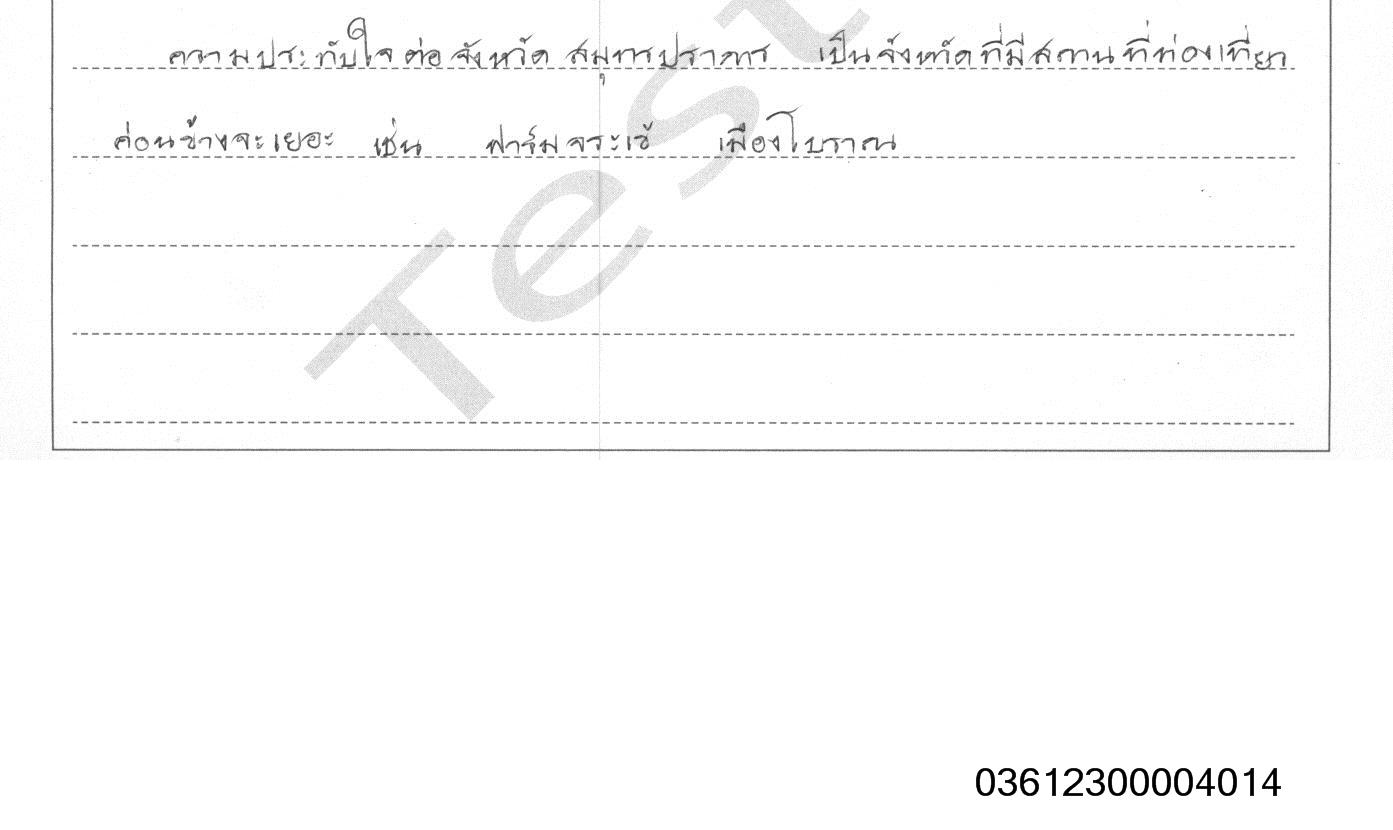 ความประทับใจต่อจังหวัดสมุทรปราการ เป็นจังหวัดที่มีสถานที่ท่องเที่ยว
ค่อนข้างจะเยอะ เช่น ฟาร์มจระเข้ เมืองโบราณ
Test
03612300004014